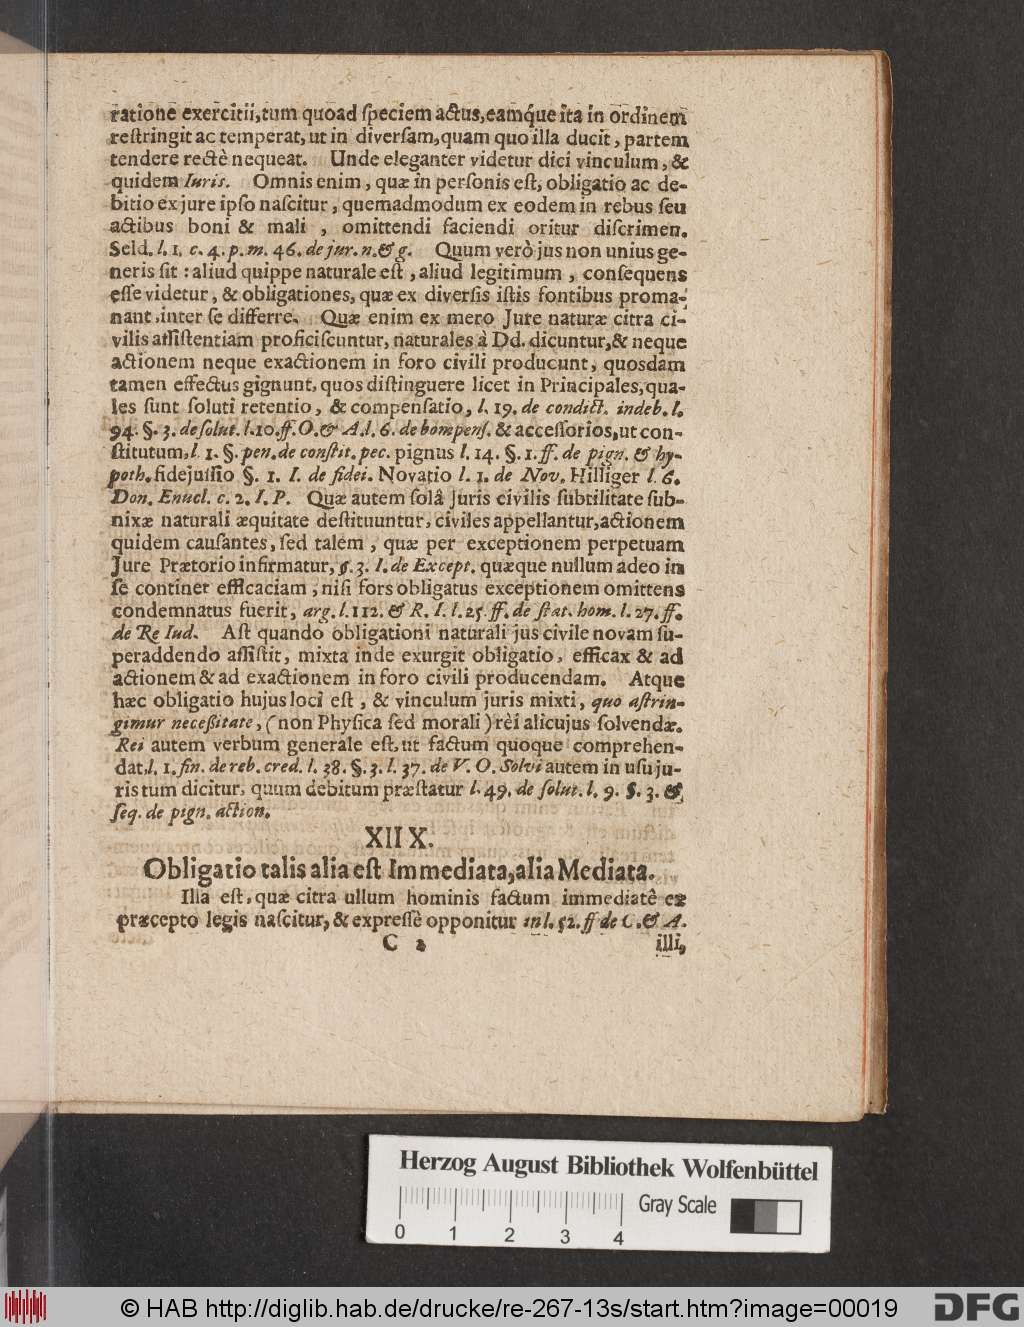 ratione exercitii, tum quoad ſpeciem actus, eamq́ue ita in ordinem
reſtringit ac temperat, ut in diverſam, quam quo illa ducit, partem
tendere rectè nequeat. Unde eleganter videtur dici vinculum, &
quidem Iuris. Omnis enim, quæ in perſonis eſt, obligatio ac de-
bitio ex jure ipſo naſcitur, quemadmodum ex eodem in rebus ſeu
actibus boni & mali, omittendi faciendi oritur diſcrimen.
Seld. l. 1. c. 4. p. m. 46. de jur. n. & g. Quum verò jus non unius ge-
neris ſit: aliud quippe naturale eſt, aliud legitimum, conſequens
eſſe videtur, & obligationes, quæ ex diverſis iſtis fontibus proma-
nant, inter ſe differre. Quæ enim ex mero Jure naturæ citra ci-
vilis aſſiſtentiam proficiſcuntur, naturales à Dd. dicuntur, & neque
actionem neque exactionem in foro civili producunt, quosdam
tamen effectus gignunt, quos diſtinguere licet in Principales, qua-
les ſunt ſoluti retentio, & compenſatio, l. 19. de condict. indeb. l.
94. §. 3. de ſolut. l. 10. ff. O. & A. l. 6. de bompenſ. & acceſſorios, ut con-
ſtitutum, l. 1. §. pen. de conſtit. pec. pignus l. 14. §. 1. ff. de pign. & hy-
poth. fidejuſſio §. 1. I. de fidei. Novatio l. 1. de Nov. Hilliger l. 6.
Don. Enucl. c. 2. I. P. Quæ autem ſolâ Juris civilis ſubtilitate ſub-
nixæ naturali æquitate deſtituuntur, civiles appellantur, actionem
quidem cauſantes, ſed talem, quæ per exceptionem perpetuam
Jure Prætorio infirmatur, §. 3. I. de Except. quæque nullum adeo in
ſe continet efficaciam, niſi fors obligatus exceptionem omittens
condemnatus fuerit, arg. l. 112. & R. I. l. 25. ff. de ſtat. hom. l. 27. ff.
de Re Iud. Aſt quando obligationi naturali jus civile novam ſu-
peraddendo aſſiſtit, mixta inde exurgit obligatio, efficax & ad
actionem & ad exactionem in foro civili producendam. Atque
hæc obligatio hujus loci eſt, & vinculum juris mixti, quo aſtrin-
gimur neceßitate, (non Phyſica ſed morali) rèi alicujus ſolvendæ.
Rei autem verbum generale eſt, ut factum quoque comprehen-
dat, l. 1. fin. de reb. cred. l. 38. §. 3. l. 37. de V. O. Solvi autem in uſu ju-
ris tum dicitur, quum debitum præſtatur l. 49. de ſolut. l. 9. §. 3. &
ſeq. de pign. action.
XIIX.
Obligatio talis alia eſt Immediata, alia Mediata.
Illa eſt, quæ citra ullum hominis factum immediatê ex
præcepto legis naſcitur, & expreſſè opponitur in l. 52. ff de C. & A.
C 2 illi,
Herzog August Bibliothek Wolfenbüttel
Gray Scale
0 1 2 3 4
© HAB http://diglib.hab.de/drucke/re-267-13s/start.htm?image=00019
DFG